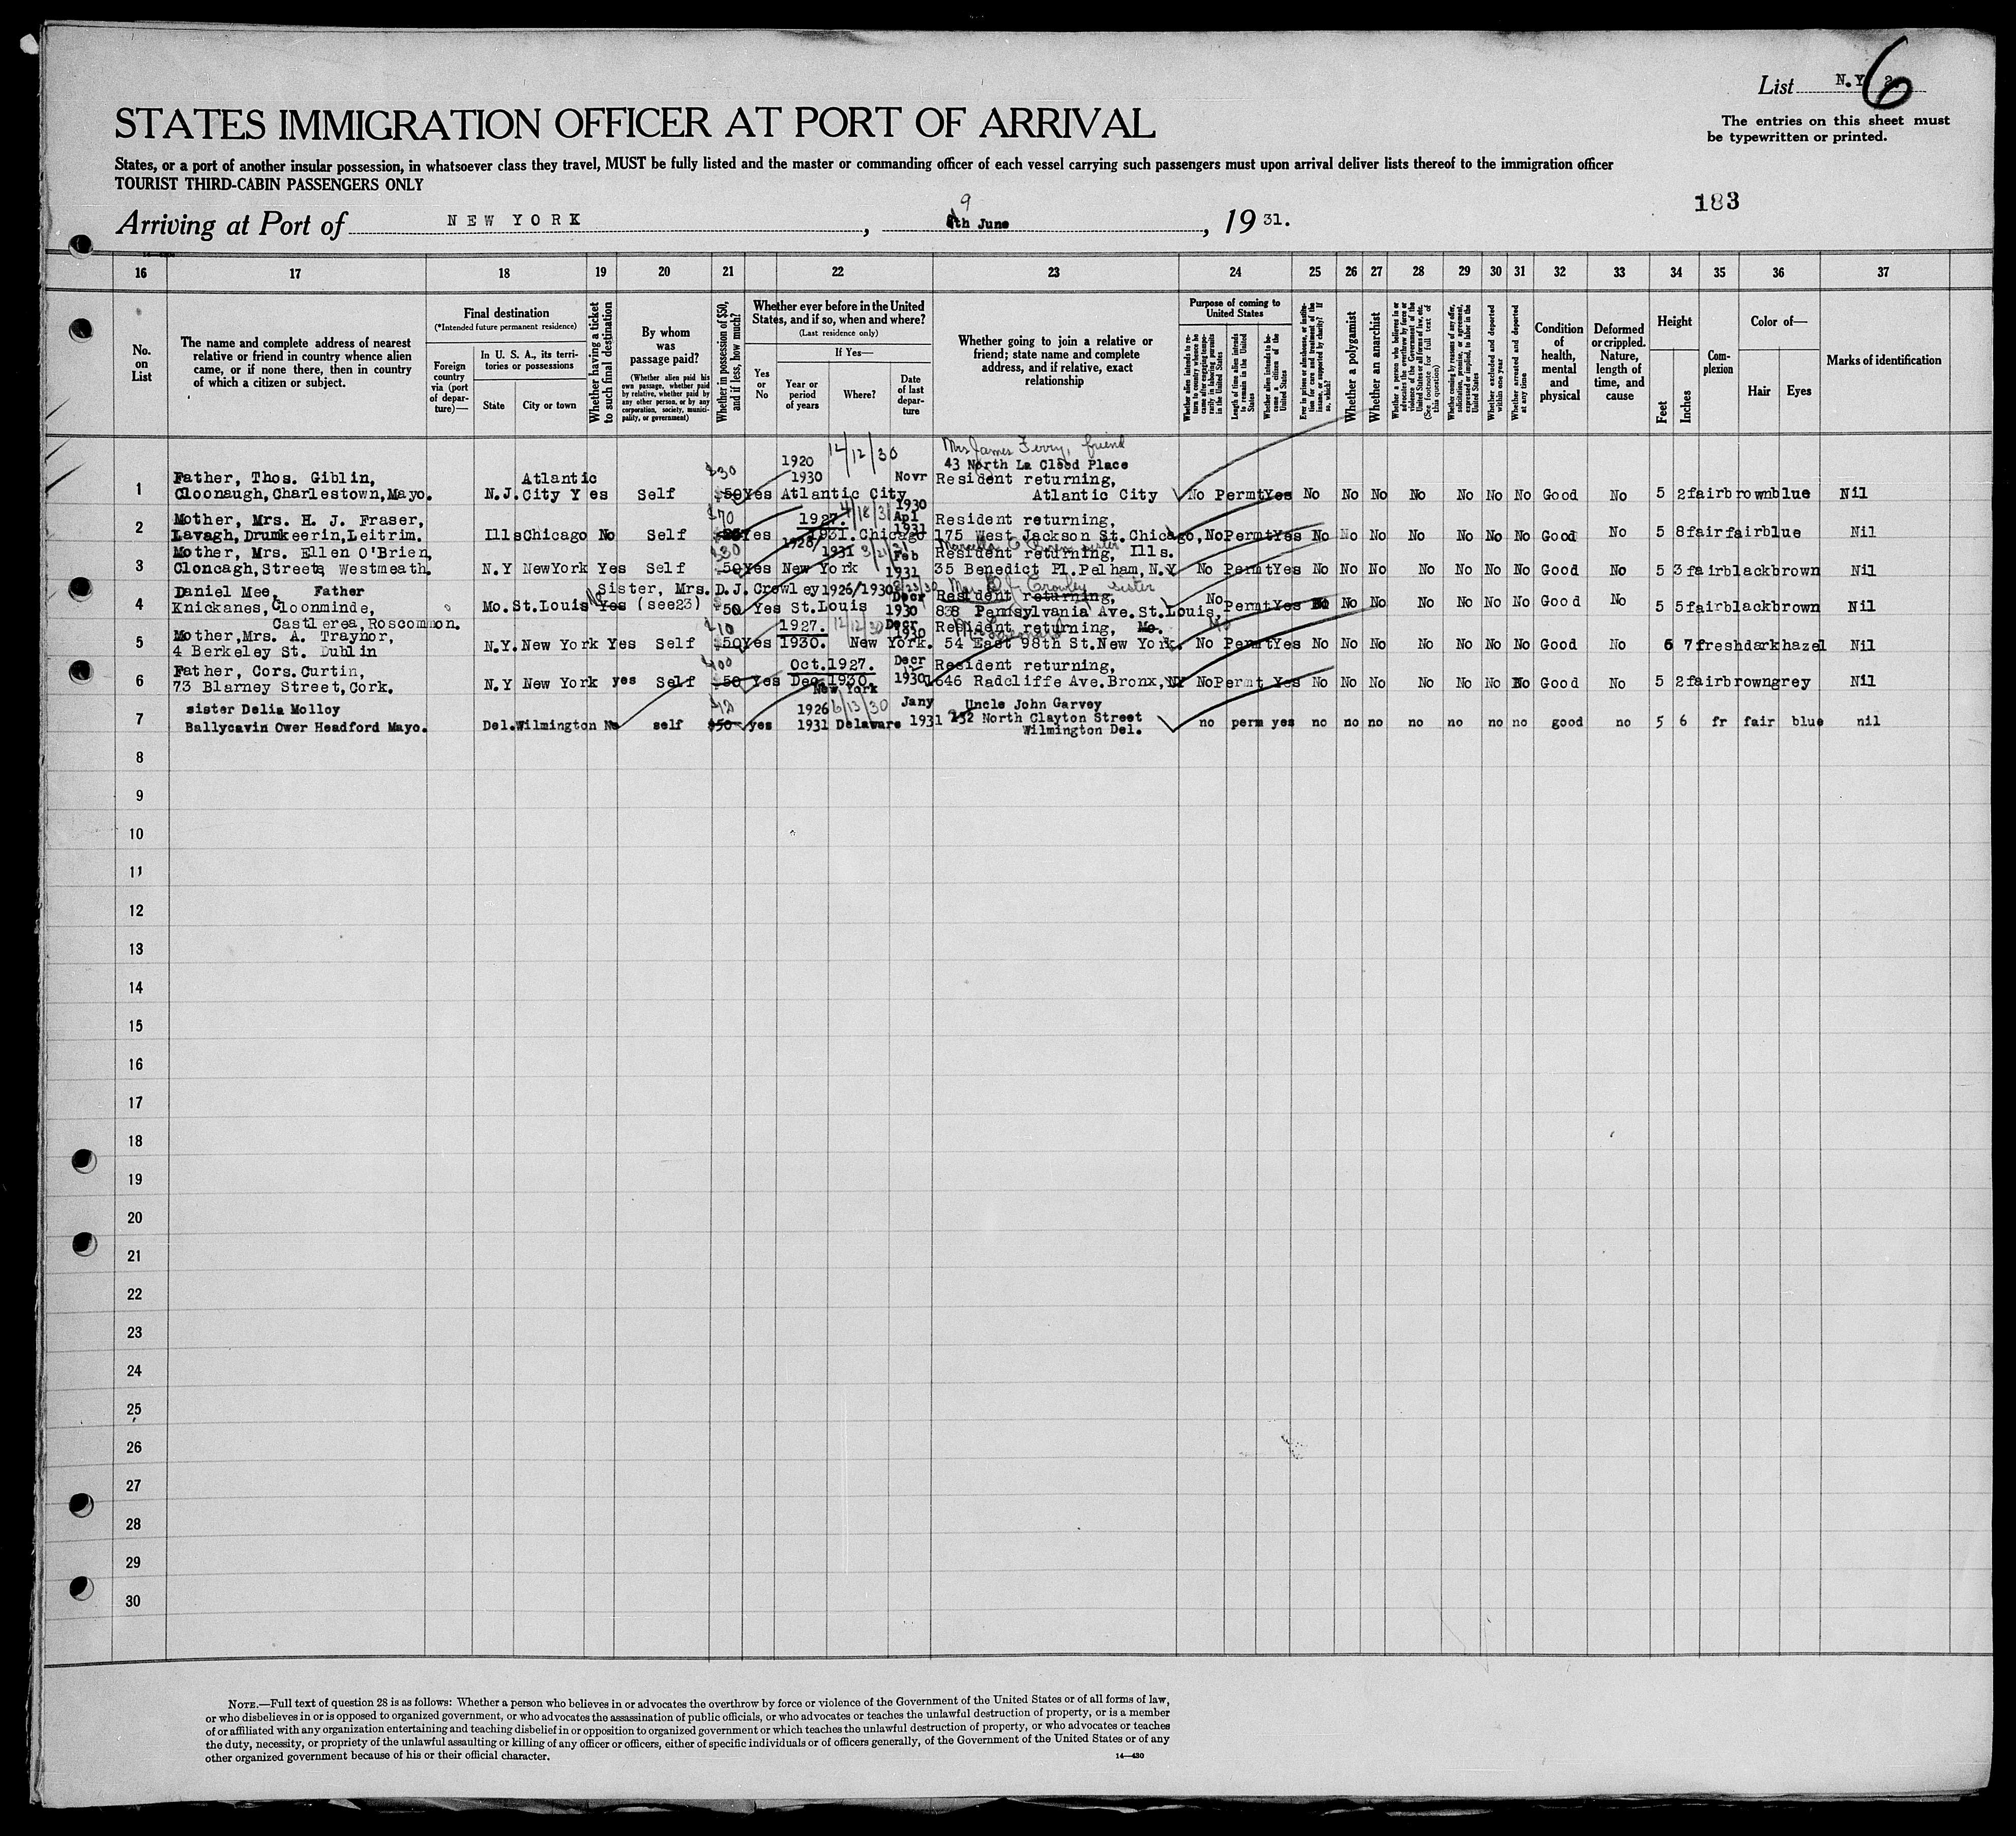 List N.Y. 2
6
The entries on this sheet must
be typewritten or printed.
STATES IMMIGRATION OFFICER AT PORT OF ARRIVAL
States, or a port of another insular possession, in whatsoever class they travel, MUST be fully listed and the master or commanding officer of each vessel carrying such passengers must upon arrival deliver lists thereof to the immigration officer
TOURIST THIRD-CABIN PASSENGERS ONLY
183
Arriving at Port of NEW YORK, 9th June, 1931.
16 17 18 19 20 21 22 23 24 25 26 27 28 29 30 31 32 33 34 35 36 37
No. on List
The name and complete address of nearest relative or friend in country whence alien came, or if none there, then in country of which a citizen or subject.
Final destination
(*Intended future permanent residence)
Foreign country via (port of departure)—
In U. S. A., its territories or possessions
State
City or town
Whether having a ticket to such final destination
By whom was passage paid?
(Whether alien paid his own passage, whether paid by relative, whether paid by any other person, or by any corporation, society, municipality, or government)
Whether in possession of $50, and if less, how much?
Whether ever before in the United States, and if so, when and where?
(Last residence only)
Yes or No
If Yes—
Year or period of years
Where?
Date of last departure
Whether going to join a relative or friend; state name and complete address, and if relative, exact relationship
Purpose of coming to United States
Whether alien intends to return to country whence he came after engaging temporarily in laboring pursuits in the United States
Length of time alien intends to remain in the United States
Whether alien intends to become a citizen of the United States
Ever in prison or almshouse, or institution for care and treatment of the insane, or supported by charity? If so, which?
Whether a polygamist
Whether an anarchist
Whether a person who believes in or advocates the overthrow by force or violence of the Government of the United States or all forms of law, etc. (See footnote for full text of this question)
Whether coming by reasons of any offer, solicitation, promise, or agreement, expressed or implied, to labor in the United States
Whether excluded and deported within one year
Whether arrested and deported at any time
Condition of health, mental and physical
Deformed or crippled. Nature, length of time, and cause
Height
Feet
Inches
Complexion
Color of—
Hair
Eyes
Marks of identification
Mrs James Ferry, friend
1920 12/12/30 43 North La Clede Place
Father, Thos. Giblin, Atlantic $30 1930 Novr Resident returning,
1 Cloonaugh, Charlestown, Mayo. N.J. City Yes Self $50 Yes Atlantic City 1930 Atlantic City No Permt Yes No No No No No No No Good No 5 2 fair brown blue Nil
Mother, Mrs. H. J. Fraser, $70 1927. 4/18/31 Apl Resident returning,
2 Lavagh, Drumkeerin, Leitrim. Ills Chicago No Self Yes 1931. Chicago 1931 175 West Jackson St. Chicago, Ills. No Permt Yes No No No No No No No Good No 5 8 fair fair blue Nil
Mother, Mrs. Ellen O'Brien, $30 1928/1931 Feb Resident returning,
3 Cloncagh, Streete, Westmeath. N.Y NewYork Yes Self $50 Yes New York 1931 35 Benedict Pl. Pelham, N.Y No Permt Yes No No No No No No No Good No 5 3 fair black brown Nil
Daniel Mee, Father Sister, Mrs. D.J. Crowley 1926/1930 Decr Mrs D J Crowley sister Resident returning,
4 Knickanes, Cloonminde, Mo. St.Louis Yes (see23) $50 Yes St.Louis 1930 838 Pennsylvania Ave. St.Louis, Mo. No Permt Yes No No No No No No No Good No 5 5 fair black brown Nil
Castlerea, Roscommon.
Mother, Mrs. A. Traynor, $10 1927. 12/12/30 Decr 1930 Resident returning,
5 4 Berkeley St. Dublin N.Y. New York Yes Self $50 Yes 1930. New York. 54 East 98th St. New York. No Permt Yes No No No No No No No Good No 6 7 fresh dark hazel Nil
Father, Cors. Curtin, $100 Oct.1927. Decr Resident returning,
6 73 Blarney Street, Cork. N.Y New York yes Self $50 Yes Dec.1930. New York 1930 1646 Radcliffe Ave. Bronx, NY No Permt Yes No No No No No No No Good No 5 2 fair brown grey Nil
sister Delia Molloy $12 1926 6/13/30 Jany Uncle John Garvey
7 Ballycavin Ower Headford Mayo. Del. Wilmington No self $50 yes 1931 Delaware 1931 232 North Clayton Street no perm yes no no no no no no no good no 5 6 fr fair blue nil
Wilmington Del.
8
9
10
11
12
13
14
15
16
17
18
19
20
21
22
23
24
25
26
27
28
29
30
NOTE.—Full text of question 28 is as follows: Whether a person who believes in or advocates the overthrow by force or violence of the Government of the United States or of all forms of law,
or who disbelieves in or is opposed to organized government, or who advocates the assassination of public officials, or who advocates or teaches the unlawful destruction of property, or is a member
of or affiliated with any organization entertaining and teaching disbelief in or opposition to organized government or which teaches the unlawful destruction of property, or who advocates or teaches
the duty, necessity, or propriety of the unlawful assaulting or killing of any officer or officers, either of specific individuals or of officers generally, of the Government of the United States or of any
other organized government because of his or their official character.
14—430